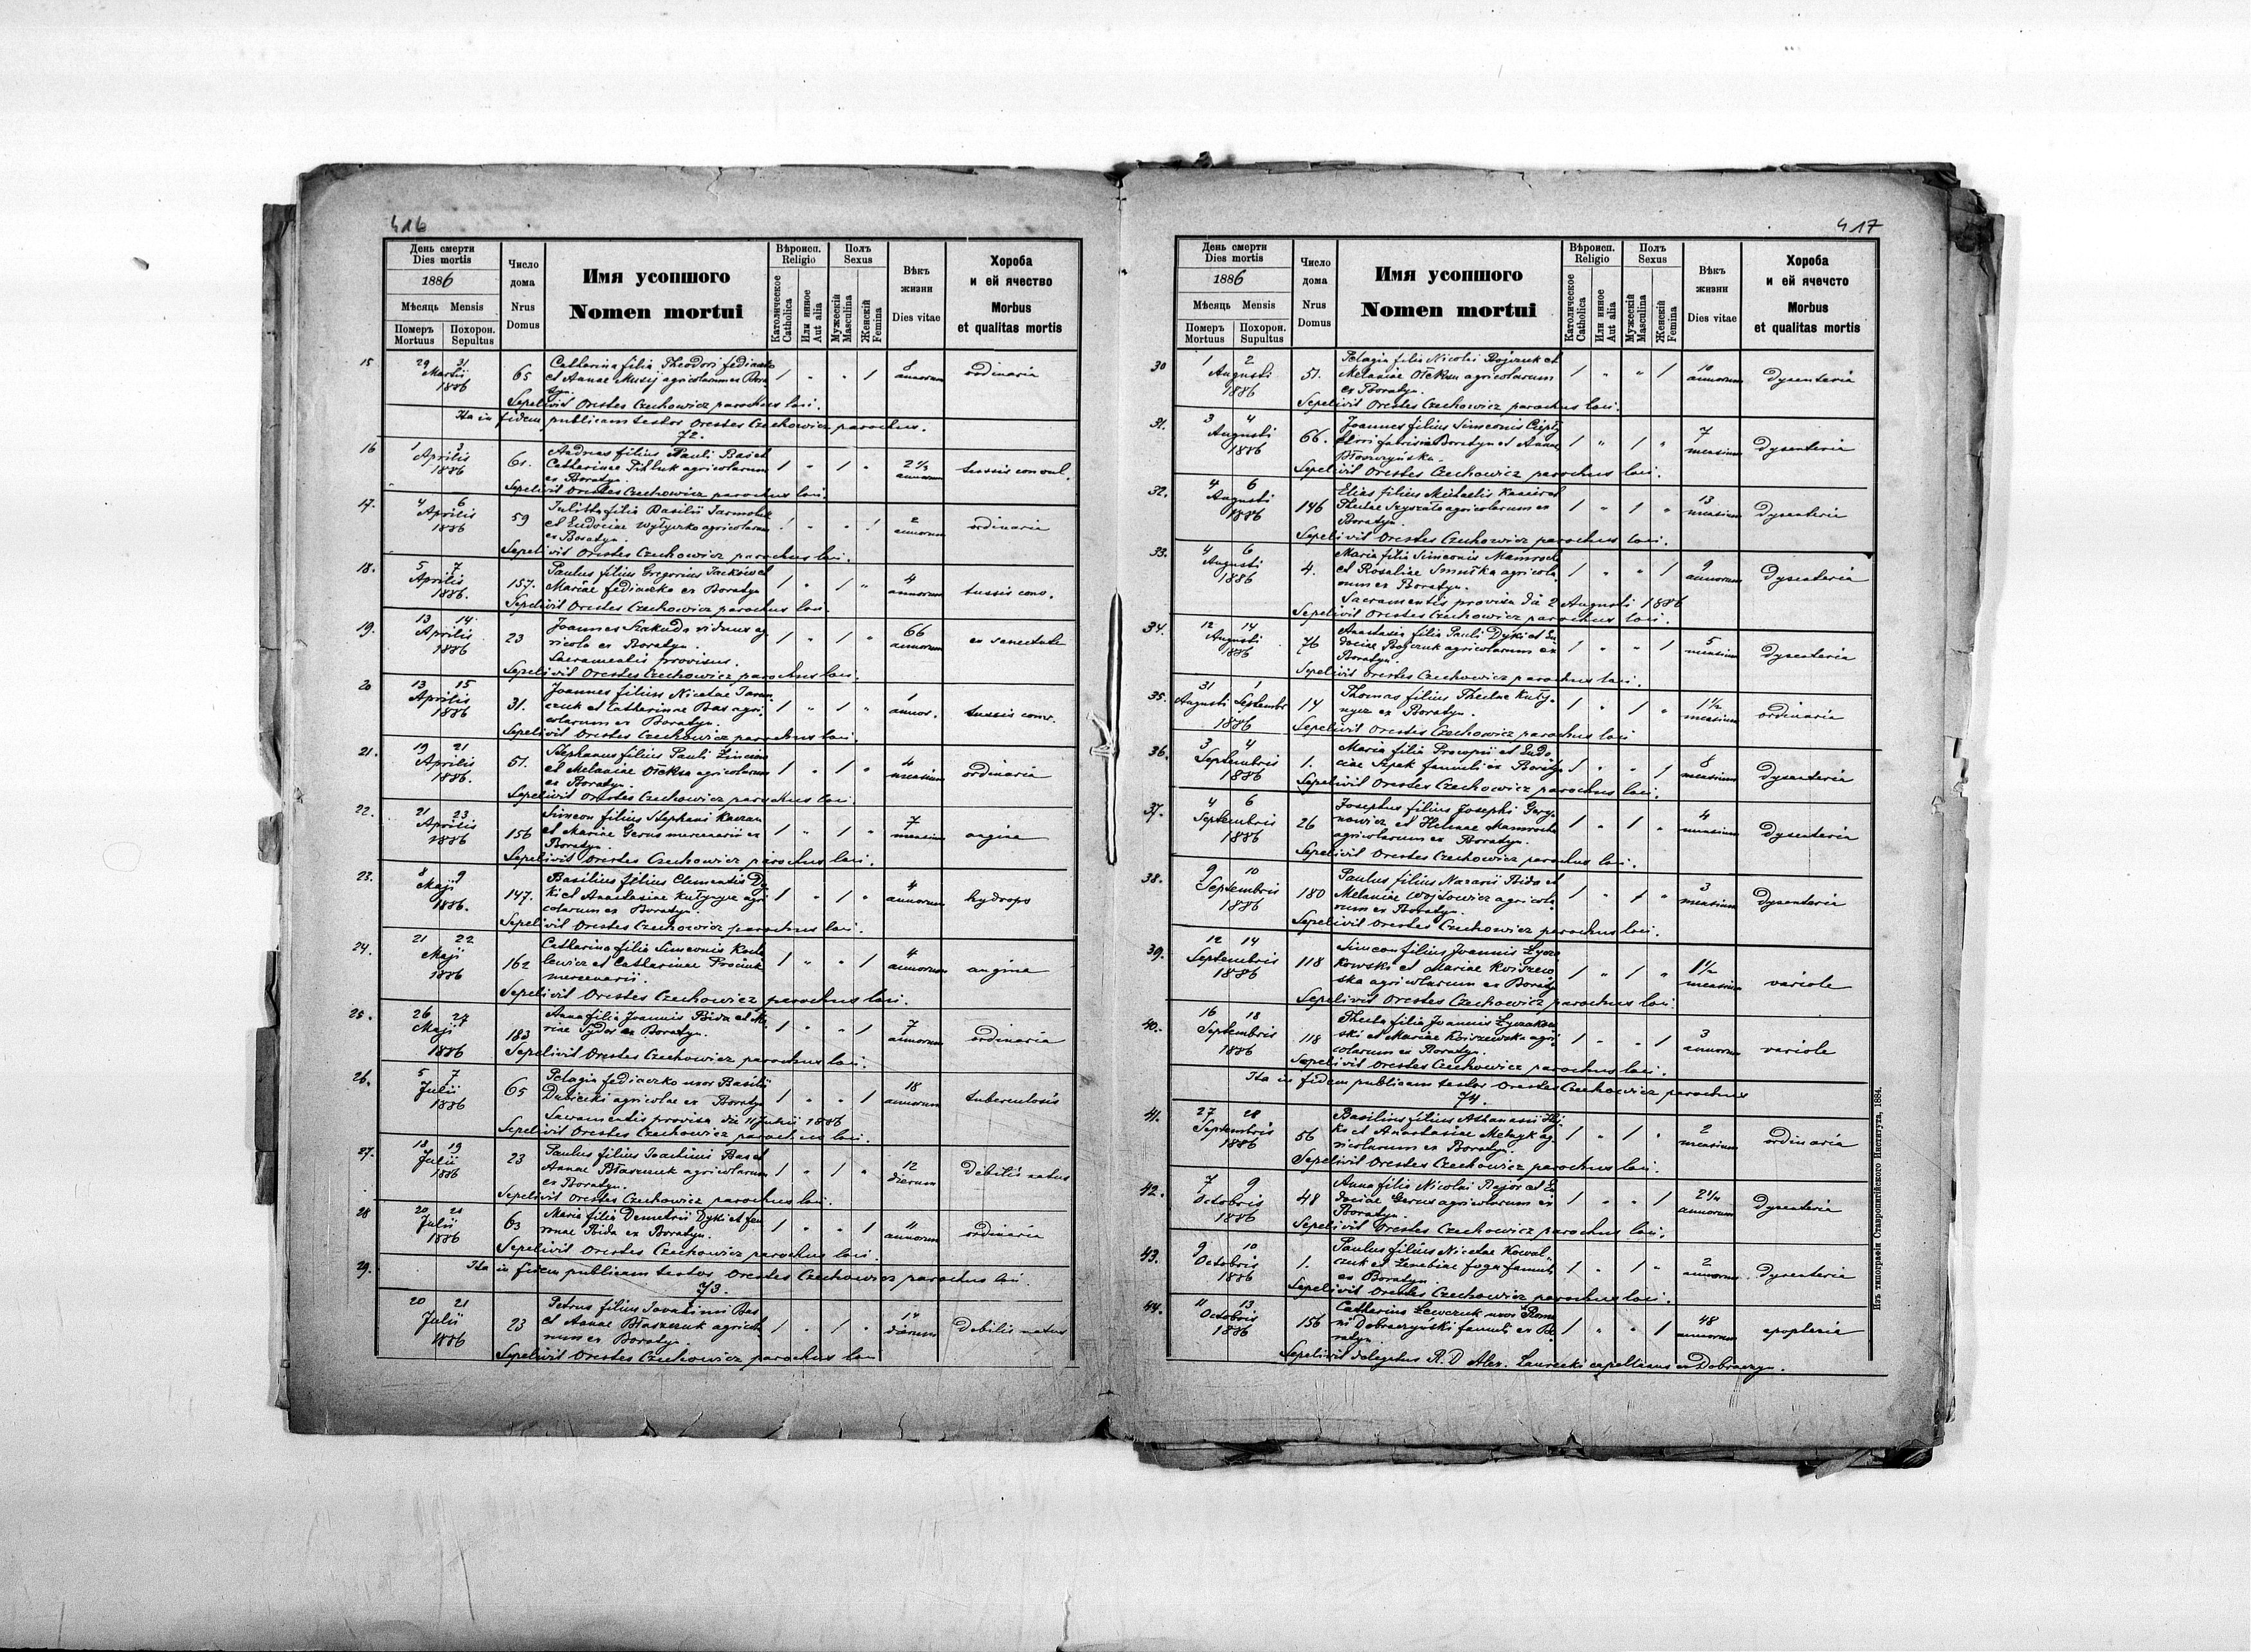 416
День смерти
Dies mortis
1886
Мѣсяць Mensis
Померъ Похорон.
Mortuus Sepultus
Число
дома
Nrus
Domus
Имя усопшого
Nomen mortui
Вѣроисп.
Religio
Католическое
Catholica
Или инное
Aut alia
Полъ
Sexus
Мужескій
Masculina
Женскій
Femina
Вѣкъ
жизни
Dies vitae
Хороба
и ей ячество
Morbus
et qualitas mortis
15 29 31 Martii 1886 65
Catharina filia Theodori
et Annae agricolarum ex Bora
tyn.
8 annorum ordinaria
Sepelivit Orestes Czechowicz parochus loci.
Ita in fidem publicam testor Orestes Czechowicz parochus.
72.
16 1 3 Aprilis 1886 61.
Andreas filius Pauli Bas et
Catharinae agricolarum
ex Boratyn.
2 1/2 annorum tussis convul.
Sepelivit Orestes Czechowicz parochus loci.
17. 4 6 Aprilis 1886 59
Julitta filia Basilii
et Eudociae agricolarum
ex Boratyn.
2 annorum ordinaria
Sepelivit Orestes Czechowicz parochus loci.
18. 5 7 Aprilis 1886. 157.
Paulus filius Gregorius Jacków et
Mariae Fediaczko ex Boratyn
4 annorum tussis conv.
Sepelivit Orestes Czechowicz parochus loci.
19. 13 14 Aprilis 1886 23
Joannes Szakuda viduus ag
ricola ex Boratyn.
Sacramentis provisus.
66 annorum ex senectute
Sepelivit Orestes Czechowicz parochus loci.
20 13 15 Aprilis 1886 31.
Joannes filius Nicetae
et Catharinae Bas agri
colarum ex Boratyn.
1 annor. tussis conv.
Sepelivit Orestes Czechowicz parochus loci.
21. 19 21 Aprilis 1886. 51.
Stephanus filius Pauli
et Melaniae agricolarum
ex Boratyn.
4 mensium ordinaria
Sepelivit Orestes Czechowicz parochus loci.
22. 21 23 Aprilis 1886 156
Simeon filius Stephani
et Mariae Gerus mercenarii ex
Boratyn.
7 mensium angina
Sepelivit Orestes Czechowicz parochus loci.
23. 8 9 Maji 1886. 147.
Basilius filius Clementis Dy
ki et Anastasiae agri
colarum ex Boratyn.
4 annorum hydrops
Sepelivit Orestes Czechowicz parochus loci.
24. 21 22 Maji 1886 162
Catharina filia Simeonis
et Catharinae
mercenarii.
4 annorum angina
Sepelivit Orestes Czechowicz parochus loci.
25. 26 27 Maji 1886 183
Anna filia Joannis Bida et Ma
riae ex Boratyn.
7 annorum ordinaria
Sepelivit Orestes Czechowicz parochus loci.
26. 5 7 Julii 1886 65
Pelagia Fediaczko uxor Basilii
Dubicki agricolae ex Boratyn
Sacramentis provisa
18 annorum tuberculosis
Sepelivit Orestes Czechowicz parochus loci.
27. 18 19 Julii 1886 23
Paulus filius Joachimi Bas et
Annae Błaszczuk agricolarum
ex Boratyn.
12 dierum Debilis natus
Sepelivit Orestes Czechowicz parochus loci.
28 20 21 Julii 1886 63
Maria filia Demetrii Dyki et
Bida ex Boratyn.
4 annorum ordinaria
Sepelivit Orestes Czechowicz parochus loci.
29. Ita in fidem publicam testor Orestes Czechowicz parochus loci.
73.
20 21 Julii 1886 23
Petrus filius Bas
et Annae Błaszczuk agricola
rum ex Boratyn.
14 dierum Debilis natus
Sepelivit Orestes Czechowicz parochus loci
417
День смерти
Dies mortis
1886
Мѣсяць Mensis
Померъ Похорон.
Mortuus Supultus
Число
дома
Nrus
Domus
Имя усопшого
Nomen mortui
Вѣроисп.
Religio
Католическое
Catholica
Или инное
Aut alia
Полъ
Sexus
Мужескій
Masculina
Женскій
Femina
Вѣкъ
жизни
Dies vitae
Хороба
и ей ячечсто
Morbus
et qualitas mortis
30 1 2 Augusti 1886 51.
Pelagia filia Nicolai Bojczuk et
Melaniae agricolarum
ex Boratyn.
10 annorum Dysenteria
Sepelivit Orestes Czechowicz parochus loci.
31. 3 4 Augusti 1886 66.
Joannes filius Simeonis
Boratyn et Annae
7 mensium Dysenteria
Sepelivit Orestes Czechowicz parochus loci.
32. 4 6 Augusti 1886 146
Elias filius Michaelis
Theclae agricolarum ex
Boratyn.
13 mensium Dysenteria
Sepelivit Orestes Czechowicz parochus loci.
33. 4 6 Augusti 1886 4.
Maria filia Simeonis Mamrocha
et Rosaliae agricola
rum ex Boratyn.
9 annorum Dysenteria
Sacramentis provisa 2 Augusti 1886
Sepelivit Orestes Czechowicz parochus loci.
34. 12 14 Augusti 1886 76
Anastasia filia Pauli Dyki et Eu
dociae Bojczuk agricolarum ex
Boratyn.
5 mensium Dysenteria
Sepelivit Orestes Czechowicz parochus loci.
35. 31 1 Augusti Septembr 1886 14
Thomas filius Theclae
ex Boratyn.
1 1/2 mensium ordinaria
Sepelivit Orestes Czechowicz parochus loci
36. 3 4 Septembris 1886 1.
Maria filia Procopii et Eudo
ciae famuli ex Boratyn
8 mensium Dysenteria
Sepelivit Orestes Czechowicz parochus loci.
37. 4 6 Septembris 1886 26
Josephus filius Josephi
et Helenae Mamrocha
agricolarum ex Boratyn.
4 mensium Dysenteria
Sepelivit Orestes Czechowicz parochus loci.
38. 9 10 Septembris 1886 180
Paulus filius Nazarii Bida et
Melaniae Wojtowicz agricola
rum ex Boratyn.
3 mensium Dysenteria
Sepelivit Orestes Czechowicz parochus loci.
39. 12 14 Septembris 1886 118
Simeon filius Joannis
et Mariae
agricolarum ex Boraty
1 1/2 mensium variole
Sepelivit Orestes Czechowicz parochus loci.
40. 16 18 Septembris 1886 118
Thecla filia Joannis
et Mariae agri
colarum ex Boratyn.
3 annorum variole
Sepelivit Orestes Czechowicz parochus loci.
Ita in fidem publicam testor Orestes Czechowicz parochus
74.
41. 27 28 Septembris 1886 56
Basilius filius Athanasii
et Anastasiae ag
ricolarum ex Boratyn.
2 mensium ordinaria
Sepelivit Orestes Czechowicz parochus loci.
42. 7 9 Octobris 1886 48
Anna filia Nicolai Major et Eu
dociae Gerus agricolarum ex
Boratyn.
2 1/2 annorum Dysenteria
Sepelivit Orestes Czechowicz parochus loci.
43. 9 10 Octobris 1886 1.
Paulus filius Nicetae Kowal
czuk et Zenobiae famuli
ex Boratyn.
2 annorum Dysenteria
Sepelivit Orestes Czechowicz parochus loci.
44. 11 13 Octobris 1886 156
Catharina uxor Roma
ni famuli ex Bo
ratyn.
48 annorum
Sepelivit delegatus R. D. Alex. Laurecki capellanus ex Dobraczyn.
Изъ типографіи Ставропигійского Института, 1884.